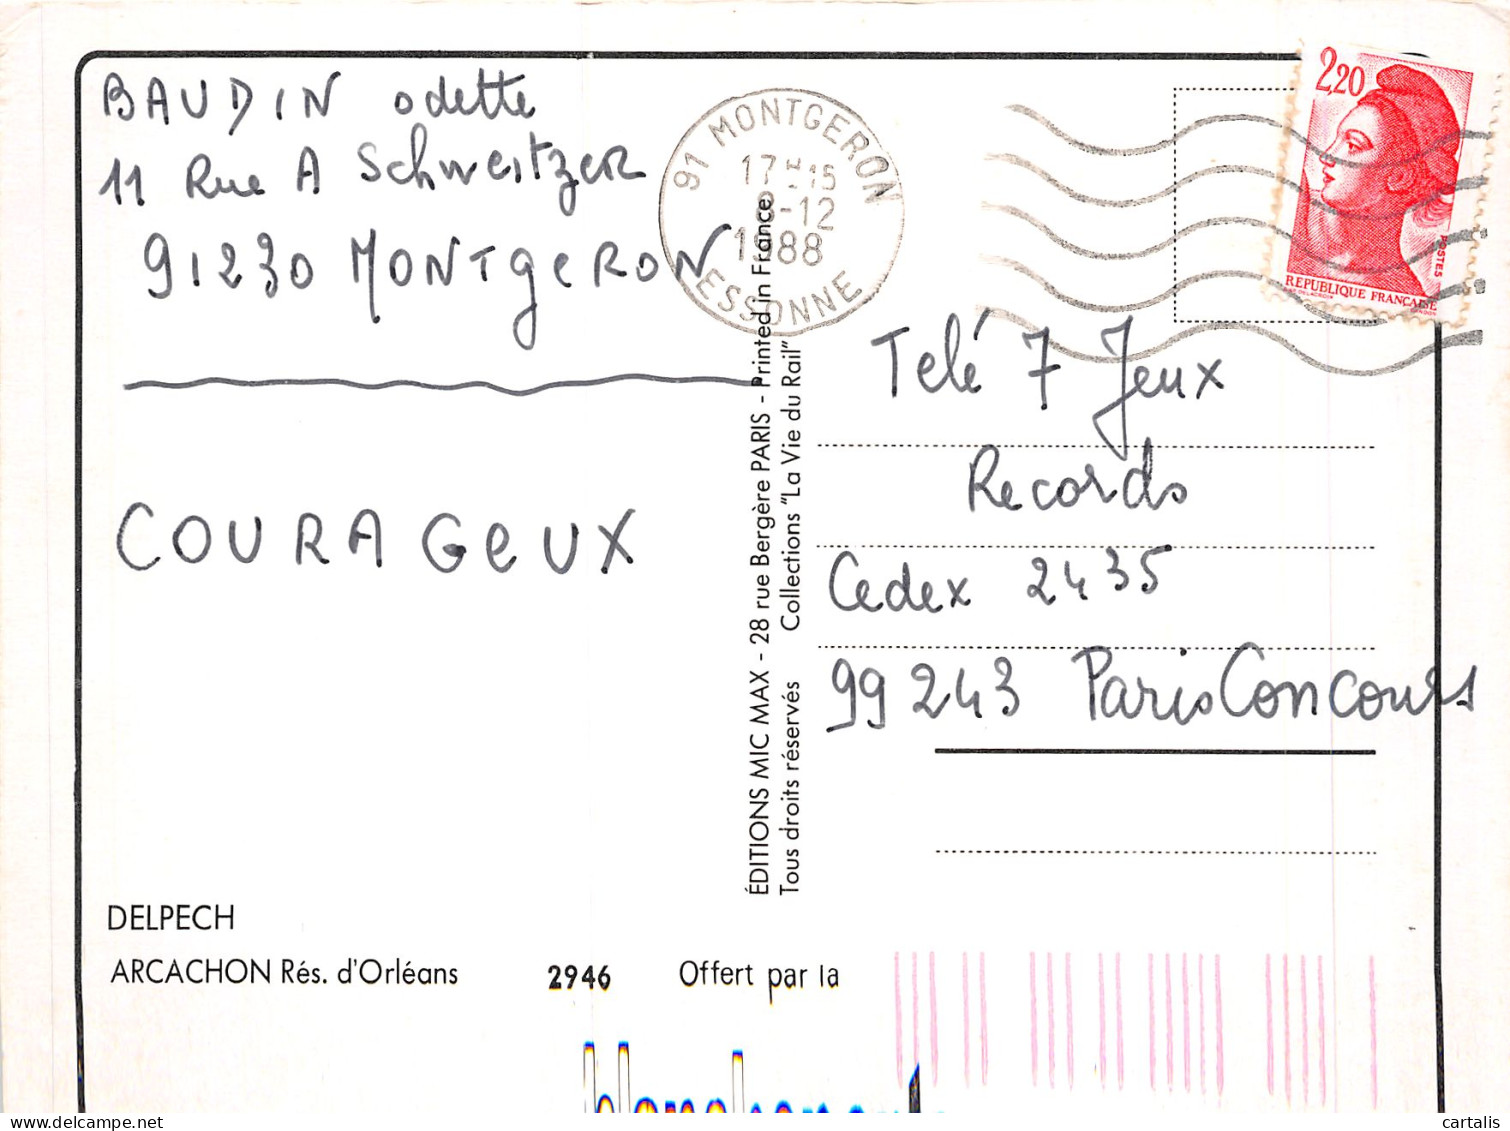 BAUDIN odette
11 Rue A Schweitzer
91230 MONTGERON
COURAGEUX
DELPECH
ARCACHON Rés. d'Orléans
2946
Offert par la
ÉDITIONS MIC MAX - 28 rue Bergère PARIS - Printed in France
Tous droits réservés Collections "La Vie du Rail"
91 MONTGERON
17H15
8-12
1988
ESSONNE
2,20
POSTES
REPUBLIQUE FRANÇAISE
Telé 7 Jeux
Records
Cedex 2435
99 243 Paris Concours
cartalis.com